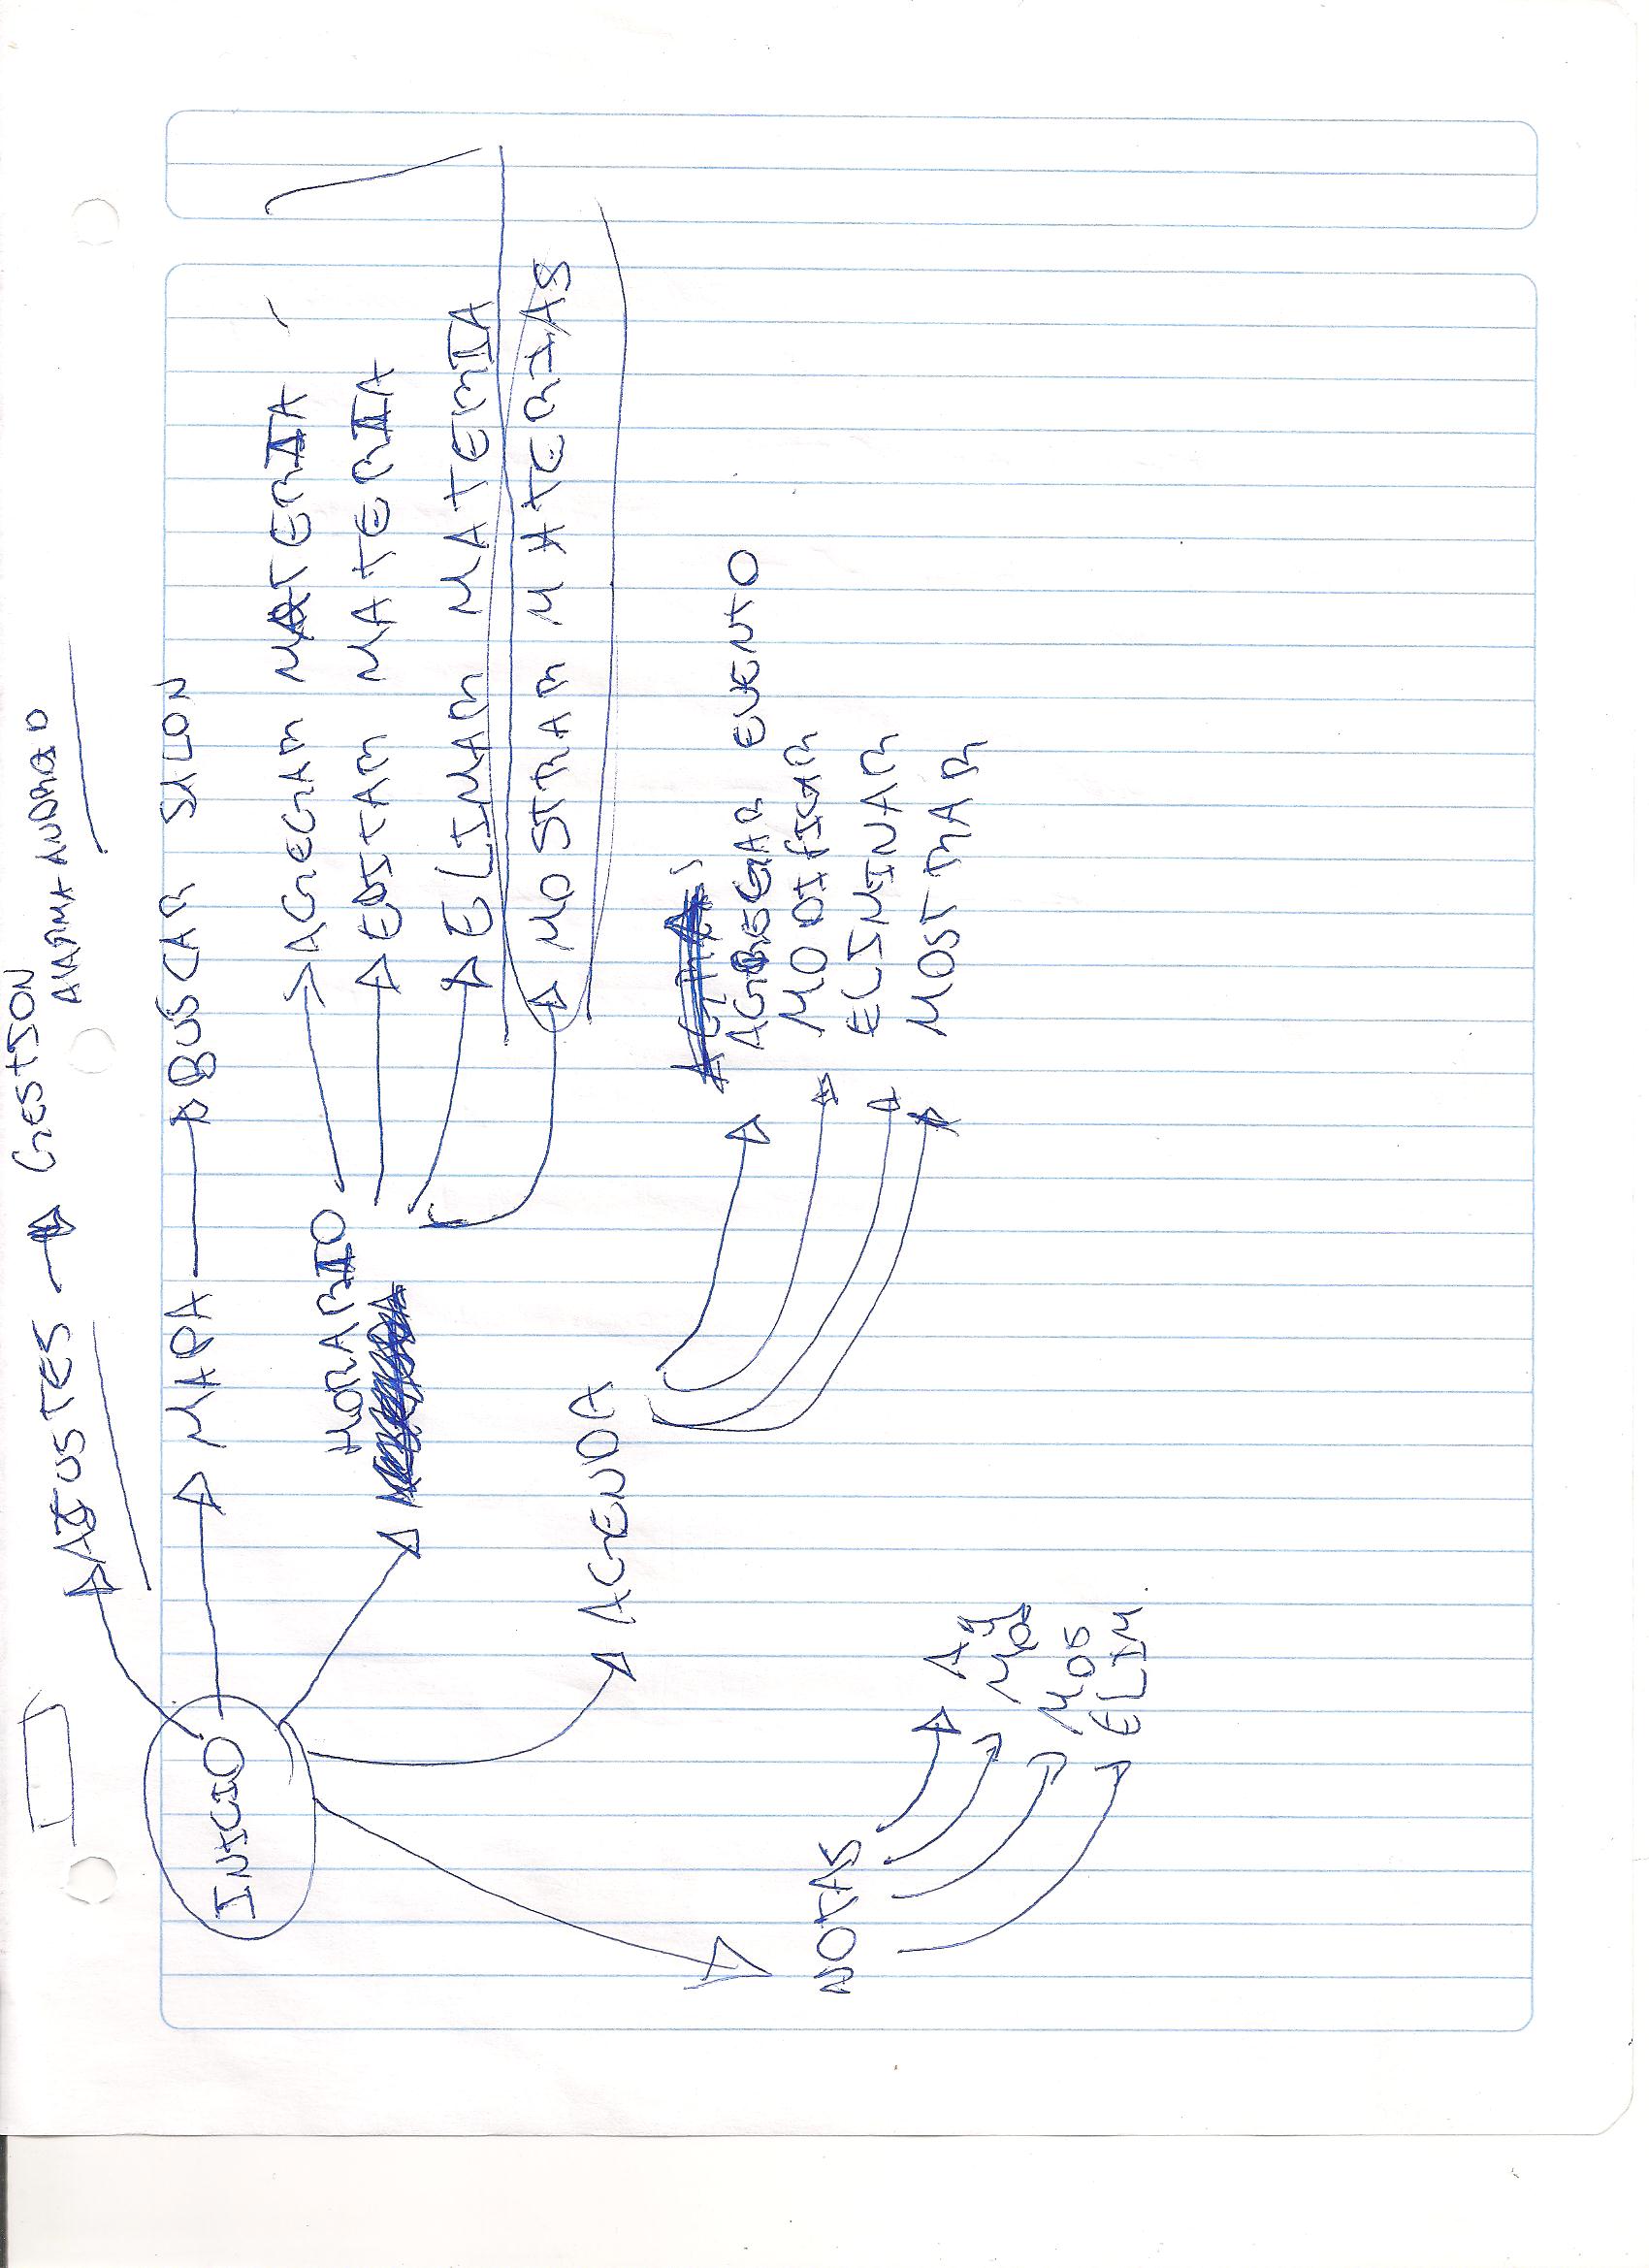 GESTION
AJUSTES
ALARMA ANDROID
MAPA BUSCAR SALON
INICIO
HORARIO
AGEGAR MATERIA
EDITAR MATERIA
ELIMAR MATERIA
MOSTRAR MATERIAS
AGENDA
AGREGAR EVENTO
MODIFICAR
ELIMINAR
MOSTRAR
NOTAS
Ag
Mod
Mos
ELIM